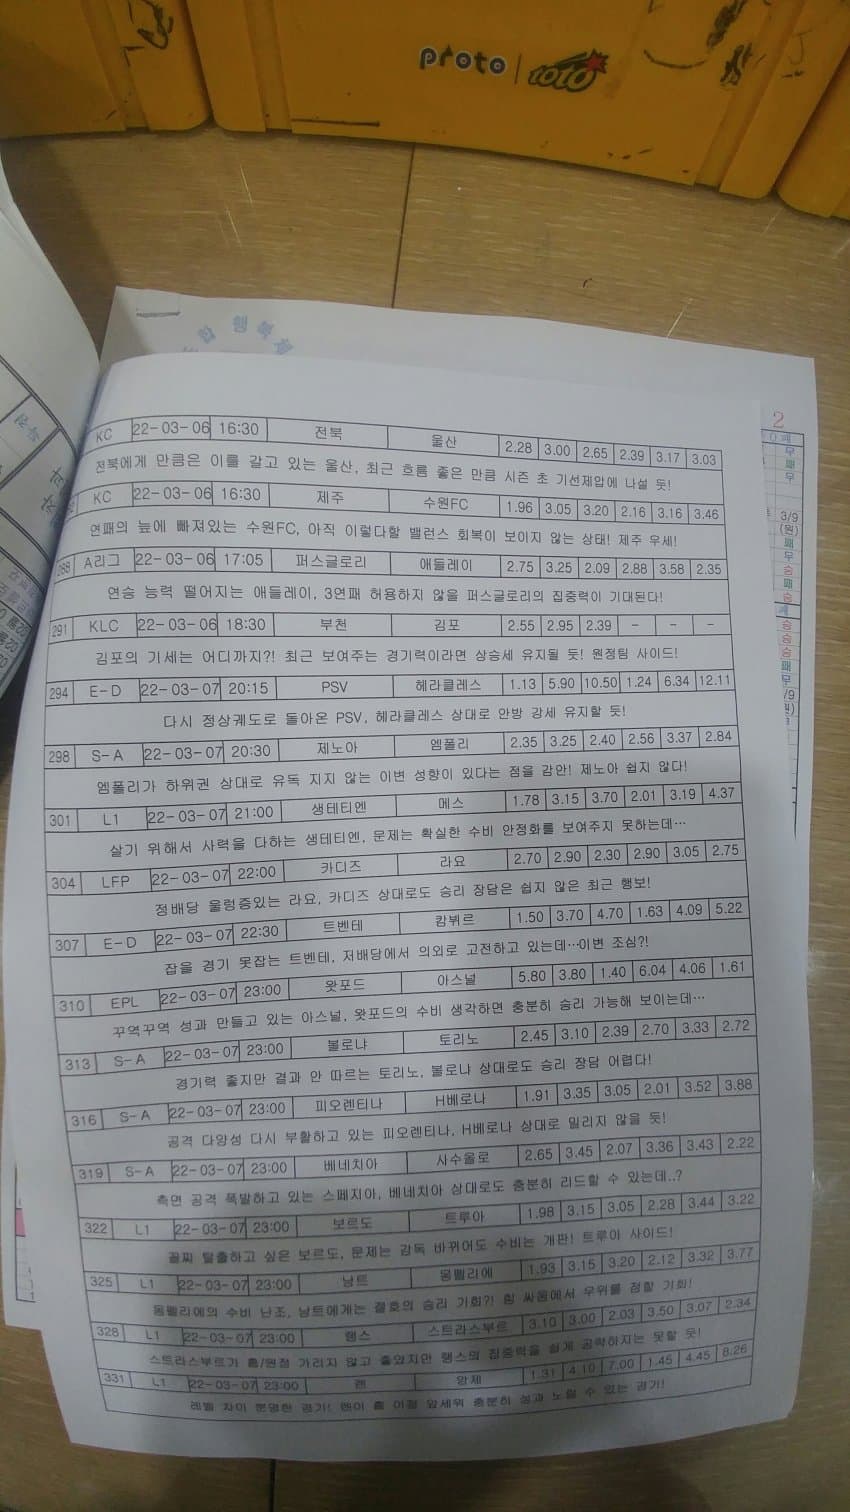 proto TOTO
행복
2
3/9
(원)
KC 22-03-06 16:30 전북 울산 2.28 3.00 2.65 2.39 3.17 3.03
전북에게 만큼은 이를 갈고 있는 울산, 최근 흐름 좋은 만큼 시즌 초 기선제압에 나설 듯!
KC 22-03-06 16:30 제주 수원FC 1.96 3.05 3.20 2.16 3.16 3.46
연패의 늪에 빠져있는 수원FC, 아직 이렇다할 밸런스 회복이 보이지 않는 상태! 제주 우세!
288 A리그 22-03-06 17:05 퍼스글로리 애들레이 2.75 3.25 2.09 2.88 3.58 2.35
연승 능력 떨어지는 애들레이, 3연패 허용하지 않을 퍼스글로리의 집중력이 기대된다!
291 KLC 22-03-06 18:30 부천 김포 2.55 2.95 2.39 - - -
김포의 기세는 어디까지?! 최근 보여주는 경기력이라면 상승세 유지될 듯! 원정팀 사이드!
294 E-D 22-03-07 20:15 PSV 헤라클레스 1.13 5.90 10.50 1.24 6.34 12.11
다시 정상궤도로 돌아온 PSV, 헤라클레스 상대로 안방 강세 유지할 듯!
298 S-A 22-03-07 20:30 제노아 엠폴리 2.35 3.25 2.40 2.56 3.37 2.84
엠폴리가 하위권 상대로 유독 지지 않는 이변 성향이 있다는 점을 감안! 제노아 쉽지 않다!
301 L1 22-03-07 21:00 생테티엔 메스 1.78 3.15 3.70 2.01 3.19 4.37
살기 위해서 사력을 다하는 생테티엔, 문제는 확실한 수비 안정화를 보여주지 못하는데…
304 LFP 22-03-07 22:00 카디즈 라요 2.70 2.90 2.30 2.90 3.05 2.75
정배당 울렁증있는 라요, 카디즈 상대로도 승리 장담은 쉽지 않은 최근 행보!
307 E-D 22-03-07 22:30 트벤테 캄뷔르 1.50 3.70 4.70 1.63 4.09 5.22
잡을 경기 못잡는 트벤테, 저배당에서 의외로 고전하고 있는데…이변 조심?!
310 EPL 22-03-07 23:00 왓포드 아스널 5.80 3.80 1.40 6.04 4.06 1.61
꾸역꾸역 성과 만들고 있는 아스널, 왓포드의 수비 생각하면 충분히 승리 가능해 보이는데…
313 S-A 22-03-07 23:00 볼로냐 토리노 2.45 3.10 2.39 2.70 3.33 2.72
경기력 좋지만 결과 안 따르는 토리노, 볼로냐 상대로도 승리 장담 어렵다!
316 S-A 22-03-07 23:00 피오렌티나 H베로나 1.91 3.35 3.05 2.01 3.52 3.88
공격 다양성 다시 부활하고 있는 피오렌티나, H베로나 상대로 밀리지 않을 듯!
319 S-A 22-03-07 23:00 베네치아 사수올로 2.65 3.45 2.07 3.36 3.43 2.22
측면 공격 폭발하고 있는 스페지아, 베네치아 상대로도 충분히 리드할 수 있는데..?
322 L1 22-03-07 23:00 보르도 트루아 1.98 3.15 3.05 2.28 3.44 3.22
꼴찌 탈출하고 싶은 보르도, 문제는 감독 바뀌어도 수비는 개판! 트루아 사이드!
325 L1 22-03-07 23:00 낭트 몽펠리에 1.93 3.15 3.20 2.12 3.32 3.77
몽펠리에의 수비 난조, 낭트에게는 결호의 승리 기회?! 힘 싸움에서 우위를 점할 기회!
328 L1 22-03-07 23:00 랭스 스트라스부르 3.10 3.00 2.03 3.50 3.07 2.34
스트라스부르가 홈/원정 가리지 않고 좋았지만 랭스의 집중력을 쉽게 공략하지는 못할 듯!
331 L1 22-03-07 23:00 렌 앙제 1.31 4.10 7.00 1.45 4.45 8.26
레벨 차이 분명한 경기! 렌이 홈 이점 앞세워 충분히 성과 노릴 수 있는 경기!